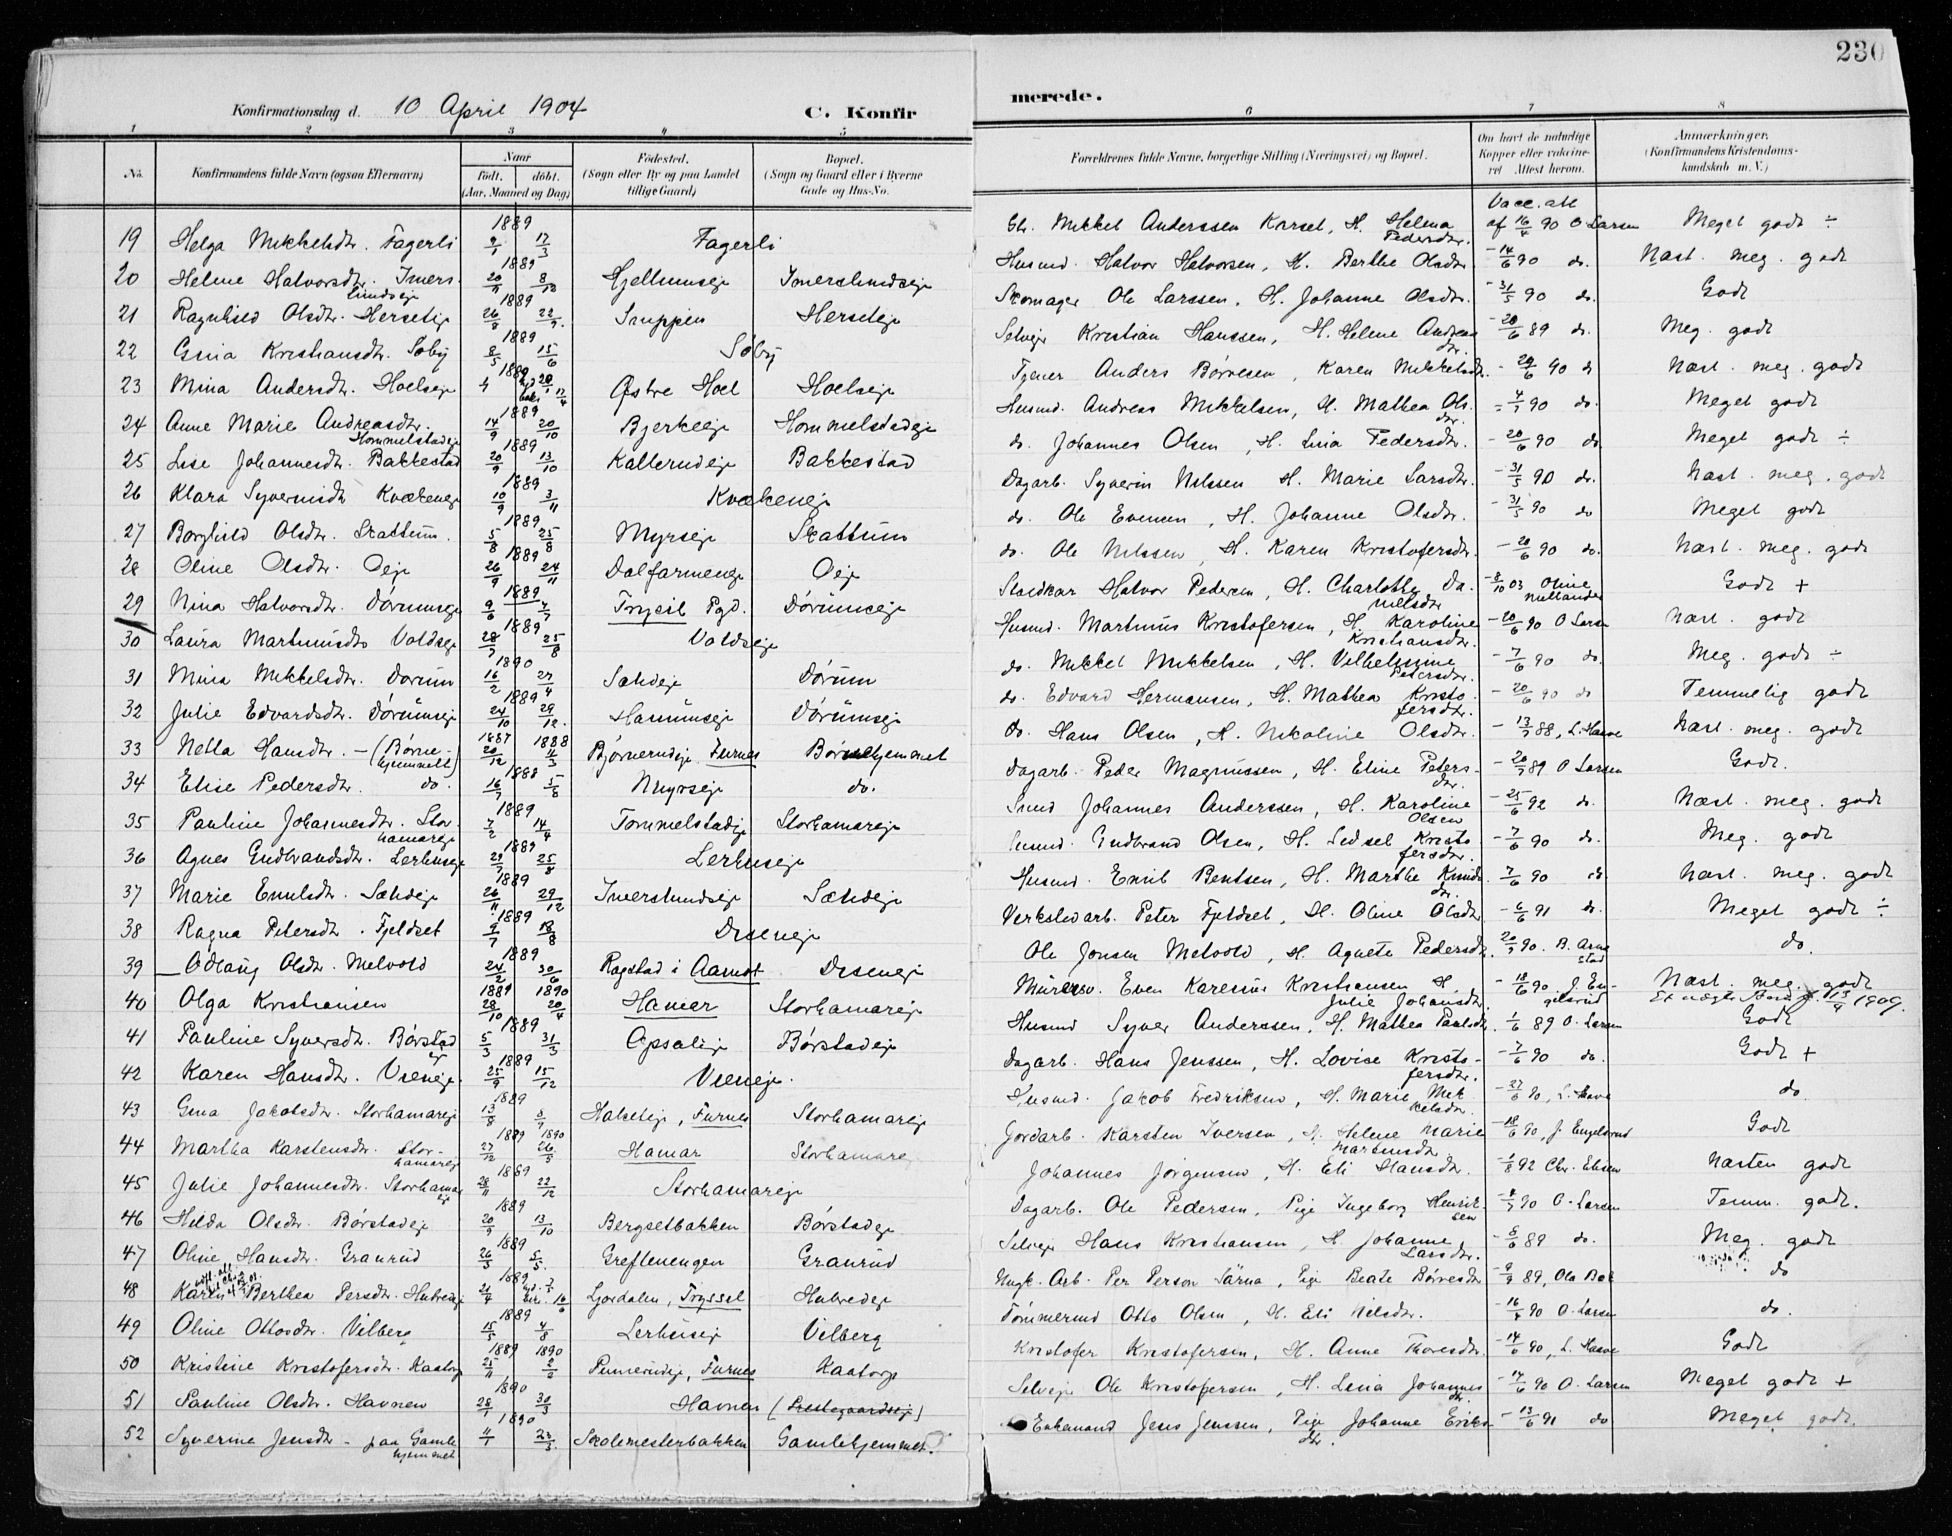 230
Konfirmationsdag d. 10 April 1904 C. Konfir
merede.
1 2 3 4 5 6 7 8
No. Konfirmandens fulde Navn (ogsaa Efternavn) Naar født. døbt. (Aar, Maaned og Dag) Fødested. (Sogn eller By og paa Landet tillige Gaard) Bopæl. (Sogn og Gaard eller i Byerne Gade og Hus-No. Forældrenes fulde Navne, borgerlige Stilling (Næringsvei) og Bopæl. Om havt de naturlige Kopper eller vaksineret Attest herom. Anmærkninger. (Konfirmandens Kristendomskundskab m. V.)
Vacc. att
19 Helga Mikkelsdtr. Fagerli 1889 17/3 Fagerli Mikkel Anderssen Korset, H. Helena Pedersdtr. af 16/4 90 O Larsen Meget godt ÷
20 Helene Halvorsdtr. Imerslundseje 1889 Hjellumseje Imerslundseje Husmd. Halvor Halvorsen, H. Berthe Olsdtr. - 14/6 90 do. Næst. meg. godt
21 Ragnhild Olsdtr. Herseteje 1889 Snuppen Herseteje Skomager Ole Larssen, H. Johanne Olsdtr. - 31/5 90 do. Godt
22 Gina Kristiansdtr. Søby 1889 8/5 15/6 Søby Selvejer Kristian Hanssen, H. Helene Andreasdtr. - 20/6 89 do. Meg. godt
23 Mina Andersdtr. Hoelseje 1889 Østre Hoel Hoelseje Tjener Anders Børresen, Karen Mikkelsdtr. - 20/6 90 do Næst. meg. godt
24 Anne Marie Andreasdtr. Hommelstadeje 1889 14/9 20/10 Bjerkeeje Hommelstadeje Husmd. Andreas Mikkelsen, H. Mathea Ols.dtr. 90 do. Meget godt
25 Lise Johannesdtr. Bakkestad 1889 20/9 13/10 Kallerudeje Bakkestad do. Johannes Olsen, H. Lina Pedersdtr. - 20/6 90 do. Meget godt ÷
26 Klara Syverinsdtr Kvækeneje 1889 10/9 3/11 Kvækeneje Dagarb. Syverin Nilssen H. Marie Larsdtr. - 31/5 90 do. Næst meg. godt
27 Borghild Olsdtr. Skattum. 1889 5/8 25/8 Myrseje Skattum do. Ole Evensen, H. Johanne Olsdtr. - 31/5 90 do Meget godt
28 Oline Olsdtr. Oeje 1889 26/9 24/11 Dalfarmeneje Oeje do. Ole Nilssen, H. Karen Kristofersdtr. - 20/6 90 do. Næst. meg. godt
29 Nina Halvorsdtr. Dørumseje 1889 9/6 7/7 Trysil Pgd. Dørumseje Halvor Pedersen, H. Charlotte Da. Nilsdtr - 8/10 03 Oline Godt +
30 Laura Martinusdtr Voldseje 1889 28/7 25/8 Voldseje Husmd. Martinus Kristofersen, H. Karoline Kristiansdtr. - 20/6 90 O Larsen Næst. godt
31 Mina Mikkelsdtr. Dørum 1890 16/2 27/4 Sælideje Dørum do. Mikkel Mikkelsen, H. Vilhelmine Petersdtr. - 7/6 90 do. Meg. godt ÷
32 Julie Edvardsdtr. Dørumseje 1889 24/10 29/12. Dørumseje do. Edvard Hermansen, H. Mathea Kristofersdtr. - 20/6 90 do Temmelig godt
33 Netta Hansdtr. - (Børnehjemmet) 1887 20/12 1888 11/3 Bjørnerudeje Furnes Børnehjemmet do. Hans Olsen, H. Nikoline Olsdtr. - 13/7 88, L. Hasve Næst. meg. godt
34 Elise Pedersdtr. do. 1888 16/7 5/8 Myrseje do. Dagarb. Peder Magnussen, H. Eline Petersdtr. - 20/7 89 O Larsen Godt.
35 Pauline Johannesdtr. Storhamareje 1889 7/2 14/4 Tommelstadeje Storhamareje Smed Johannes Anderssen, H. Karoline Olsen - 25/6 92 do. Næst. meg. godt
36 Agnes Gudbrandsdtr. Lerhuseje 1889 25/8 Lerhuseje Husmd. Gudbrand Olsen, H. Sidsel Kristofersdtr. - 7/6 90 do. Meg. godt
37 Marie Emilsdtr. Sælideje 1889 26/11 29/12 Imerslundseje Sælideje Husmd. Emil Bentsen, H. Marthe Knudsdtr. 7/6 90 do Næst. meg. godt
38 Ragna Petersdtr. Fjeldset 1889 9/7 18/8 Diseneje Verkstedarb. Peter Fjeldset, H. Oline Olsdtr - 6/6 91 do. Meget godt ÷
39 Ödlaug Olsdtr. Melvold 1889 24/2 30/6 Rogstad i Aamot Diseneje Ole Jonsen Melvold, H. Agnete Pedersdtr. 20/7 90. B. Arnestad do.
40 Olga Kristiansen 1889 28/10 1890 20/4 Hamar Storhamareje Murersv. Even Karenius Kristiansen H. Julie Johansdtr. - 18/6 90. J. Engelsrud Næst. meg. godt
13/4 1909.
41 Pauline Syversdtr. Børstadeje 1889 5/3 31/3 Opsaleje Børstadeje Husmd Syver Anderssen, H. Mathea Paulsdtr. 1/6 89 O. Larsen Godt
42 Karen Hansdtr. Vieneje. 1889 25/9 15/12 Vieneje. Dagarb. Hans Jenssen, H. Lovise Kristofersdtr. - 7/6 90 do. Godt +
43 Gina Jakobsdtr. Storhamareje 1889 Halseteje, Furnes Storhamareje Husmd. Jakob Fredriksen, H. Marie Mikkelsdtr. - 27/6 90, L. Hasve do.
44 Martha Karstensdtr. Storhamareje 1889 27/12 1890 26/5 Hamar Storhamareje Jordarb. Karsten Iversen, H. Helene Marie Martinsdtr - 18/6 90, J. Engelsrud Godt
45 Julie Johannesdtr. Storhamareje 1889 28/11 22/12 Storhamareje Johannes Jørgensen, H. Eli Hansdtr. - 1/8 92 Chr. Ebsen Næsten godt
46 Hilda Olsdtr. Børstadeje 1889 20/9 13/10 Bergsetbakken Børstadeje Dagarb. Ole Pedersen, Pige Ingeborg Henriksen 90 O. Larsen Temm. godt.
47 Oline Hansdtr. Granrud 1889 26/3 5/5. Greftenengen Granrud Selvejer Hans Kristiansen, H. Johanne Larsdtr. - 8/6 89 do. Meg. godt
48 Karin Berthea Persdtr. Hubredeje 1889 21/4 Ljørdalen, Tryssil Hubredeje Ungk. Arb. Per Person Särna, Pige Beate Børresdtr - 9/9 89, Ola Bak do
49 Oline Ottosdtr. Vilberg 1889 15/5 4/8 Lerhuseje Vilberg Tømmermd Otto Olsen, H. Eli Nilsdtr. 90 O. Larsen do.
50 Kristine Kristofersdtr. Kaatorp 1889 25/11 1890 2/2 Furnes Kaatorp Kristofer Kristofersen, H. Anne Thoresdtr. - 14/6 90, L. Hasve Godt
51 Pauline Olsdtr. Havnen 1890 28/1 30/3 Havnen (Prestegaardseje) Selvejer Ole Kristofersen, H. Lina Johannesdtr. - 14/6 90 O. Larsen Meget godt +
52 Syverine Jensdtr - paa Gamlehjemmet 1890 11/1 23/3 Skolemesterbakken Gamlehjemmet. Enkemand Jens Jenssen, Pige Johanne Eriksdtr. - 13/6 91 do Meget godt.